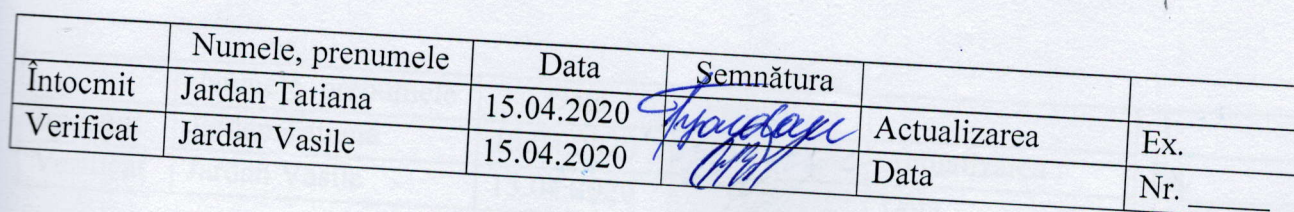 Numele, prenumele Data Semnătura
Întocmit Jardan Tatiana 15.04.2020 Actualizarea Ex.
Verificat Jardan Vasile 15.04.2020 Data Nr. ______